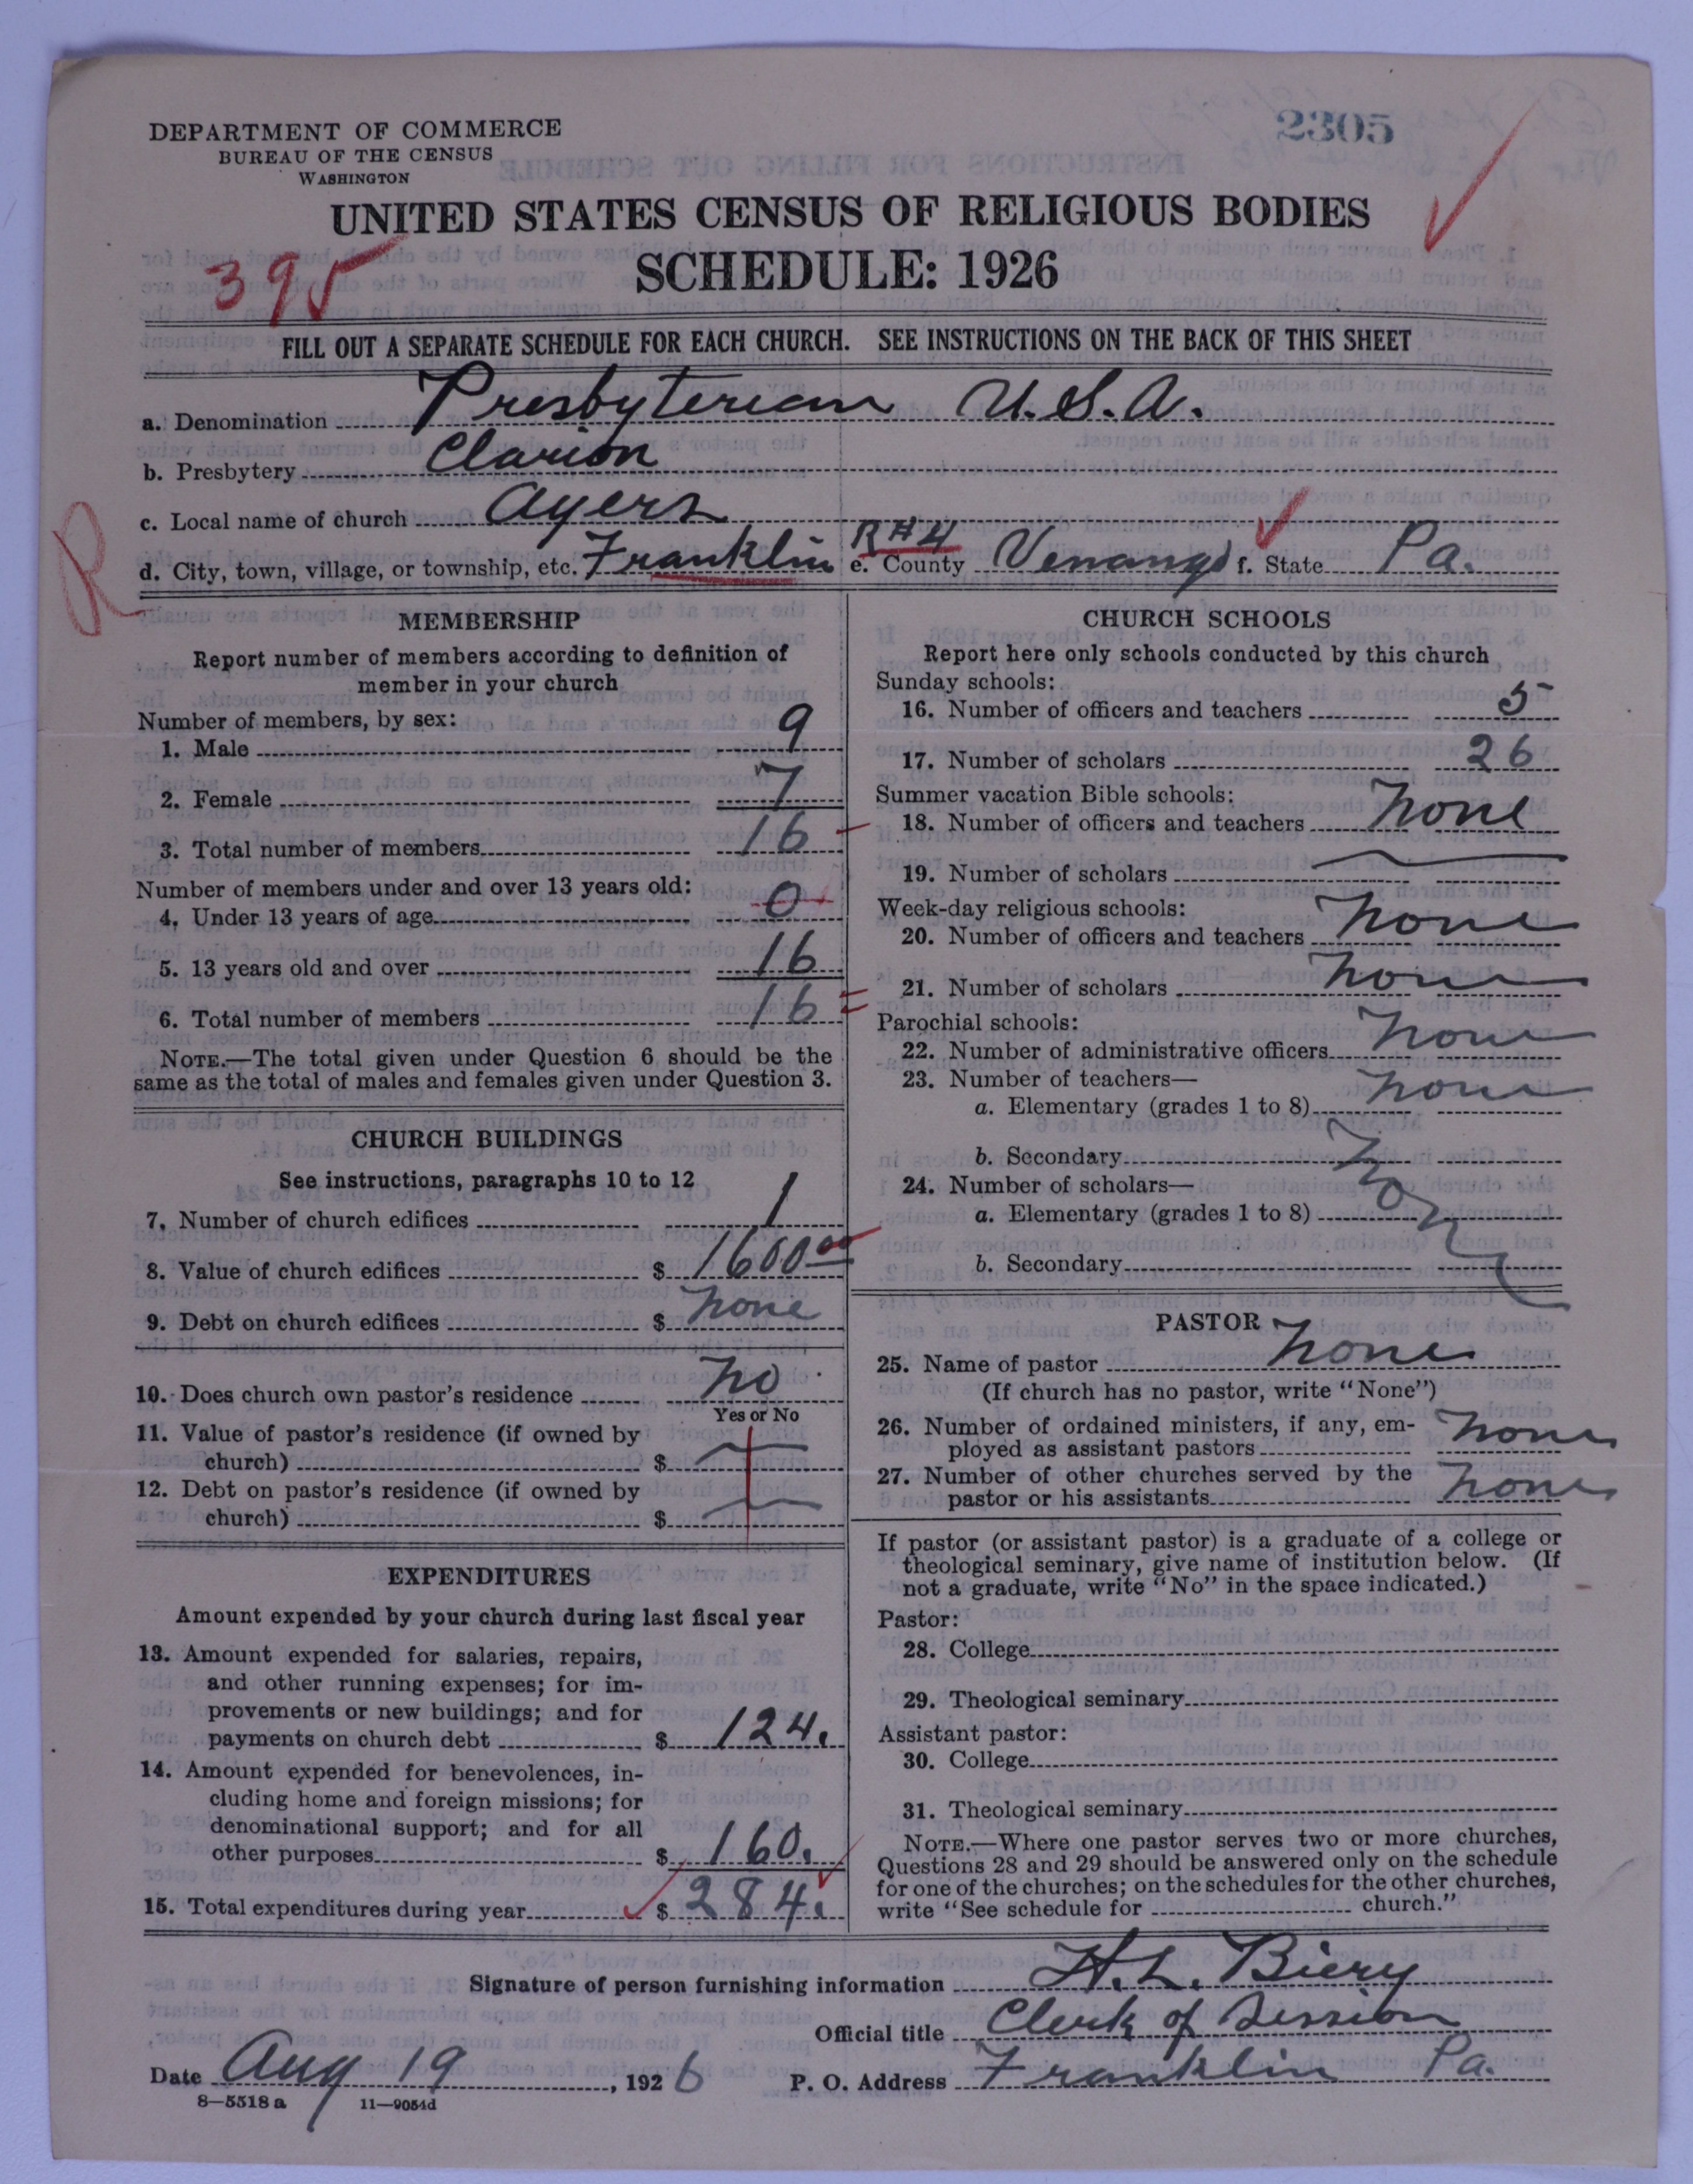 DEPARTMENT OF COMMERCE
BUREAU OF THE CENSUS
WASHINGTON
2305
UNITED STATES CENSUS OF RELIGIOUS BODIES
SCHEDULE: 1926
395
FILL OUT A SEPARATE SCHEDULE FOR EACH CHURCH. SEE INSTRUCTIONS ON THE BACK OF THIS SHEET
a. Denomination Presbyterian U.S.A.
b. Presbytery Clarion
c. Local name of church Ayers
R
d. City, town, village, or township, etc. Franklin R#4 e. County Venango f. State Pa.
MEMBERSHIP
Report number of members according to definition of
member in your church
Number of members, by sex:
1. Male 9
2. Female 7
3. Total number of members 16
Number of members under and over 13 years old:
4. Under 13 years of age 0
5. 13 years old and over 16
6. Total number of members 16
NOTE.—The total given under Question 6 should be the
same as the total of males and females given under Question 3.
CHURCH BUILDINGS
See instructions, paragraphs 10 to 12
7. Number of church edifices 1
8. Value of church edifices $ 1600 00
9. Debt on church edifices $ none
10. Does church own pastor's residence no
Yes or No
11. Value of pastor's residence (if owned by
church) $
12. Debt on pastor's residence (if owned by
church) $
EXPENDITURES
Amount expended by your church during last fiscal year
13. Amount expended for salaries, repairs,
and other running expenses; for im-
provements or new buildings; and for
payments on church debt $ 124.
14. Amount expended for benevolences, in-
cluding home and foreign missions; for
denominational support; and for all
other purposes $ 160.
15. Total expenditures during year $ 284.
CHURCH SCHOOLS
Report here only schools conducted by this church
Sunday schools:
16. Number of officers and teachers 5
17. Number of scholars 26
Summer vacation Bible schools:
18. Number of officers and teachers none
19. Number of scholars
Week-day religious schools:
20. Number of officers and teachers none
21. Number of scholars none
Parochial schools:
22. Number of administrative officers none
23. Number of teachers—
a. Elementary (grades 1 to 8) none
b. Secondary none
24. Number of scholars—
a. Elementary (grades 1 to 8)
b. Secondary
PASTOR
25. Name of pastor none
(If church has no pastor, write "None")
26. Number of ordained ministers, if any, em-
ployed as assistant pastors none
27. Number of other churches served by the
pastor or his assistants none
If pastor (or assistant pastor) is a graduate of a college or
theological seminary, give name of institution below. (If
not a graduate, write "No" in the space indicated.)
Pastor:
28. College
29. Theological seminary
Assistant pastor:
30. College
31. Theological seminary
NOTE.—Where one pastor serves two or more churches,
Questions 28 and 29 should be answered only on the schedule
for one of the churches; on the schedules for the other churches,
write "See schedule for church."
Signature of person furnishing information H. L. Biery
Official title Clerk of Session
Date Aug 19, 1926 P. O. Address Franklin Pa.
8—5518 a 11—9054d